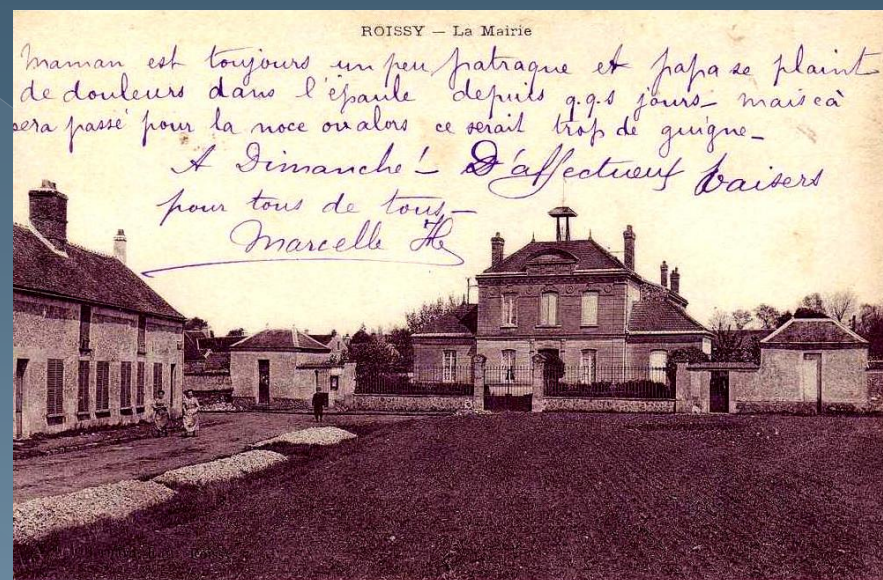 ROISSY — La Mairie
Maman est toujours un peu patraque et papa se plaint
de douleurs dans l'épaule depuis q.q.s jours - mais çà
sera passé pour la noce ou alors ce serait trop de guigne -
A Dimanche ! - D'affectueux baisers
pour tous de tous -
Marcelle